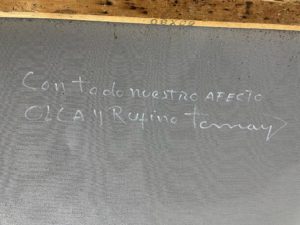 Con todo nuestro AFECTO
OLGA y Rufino Tamayo